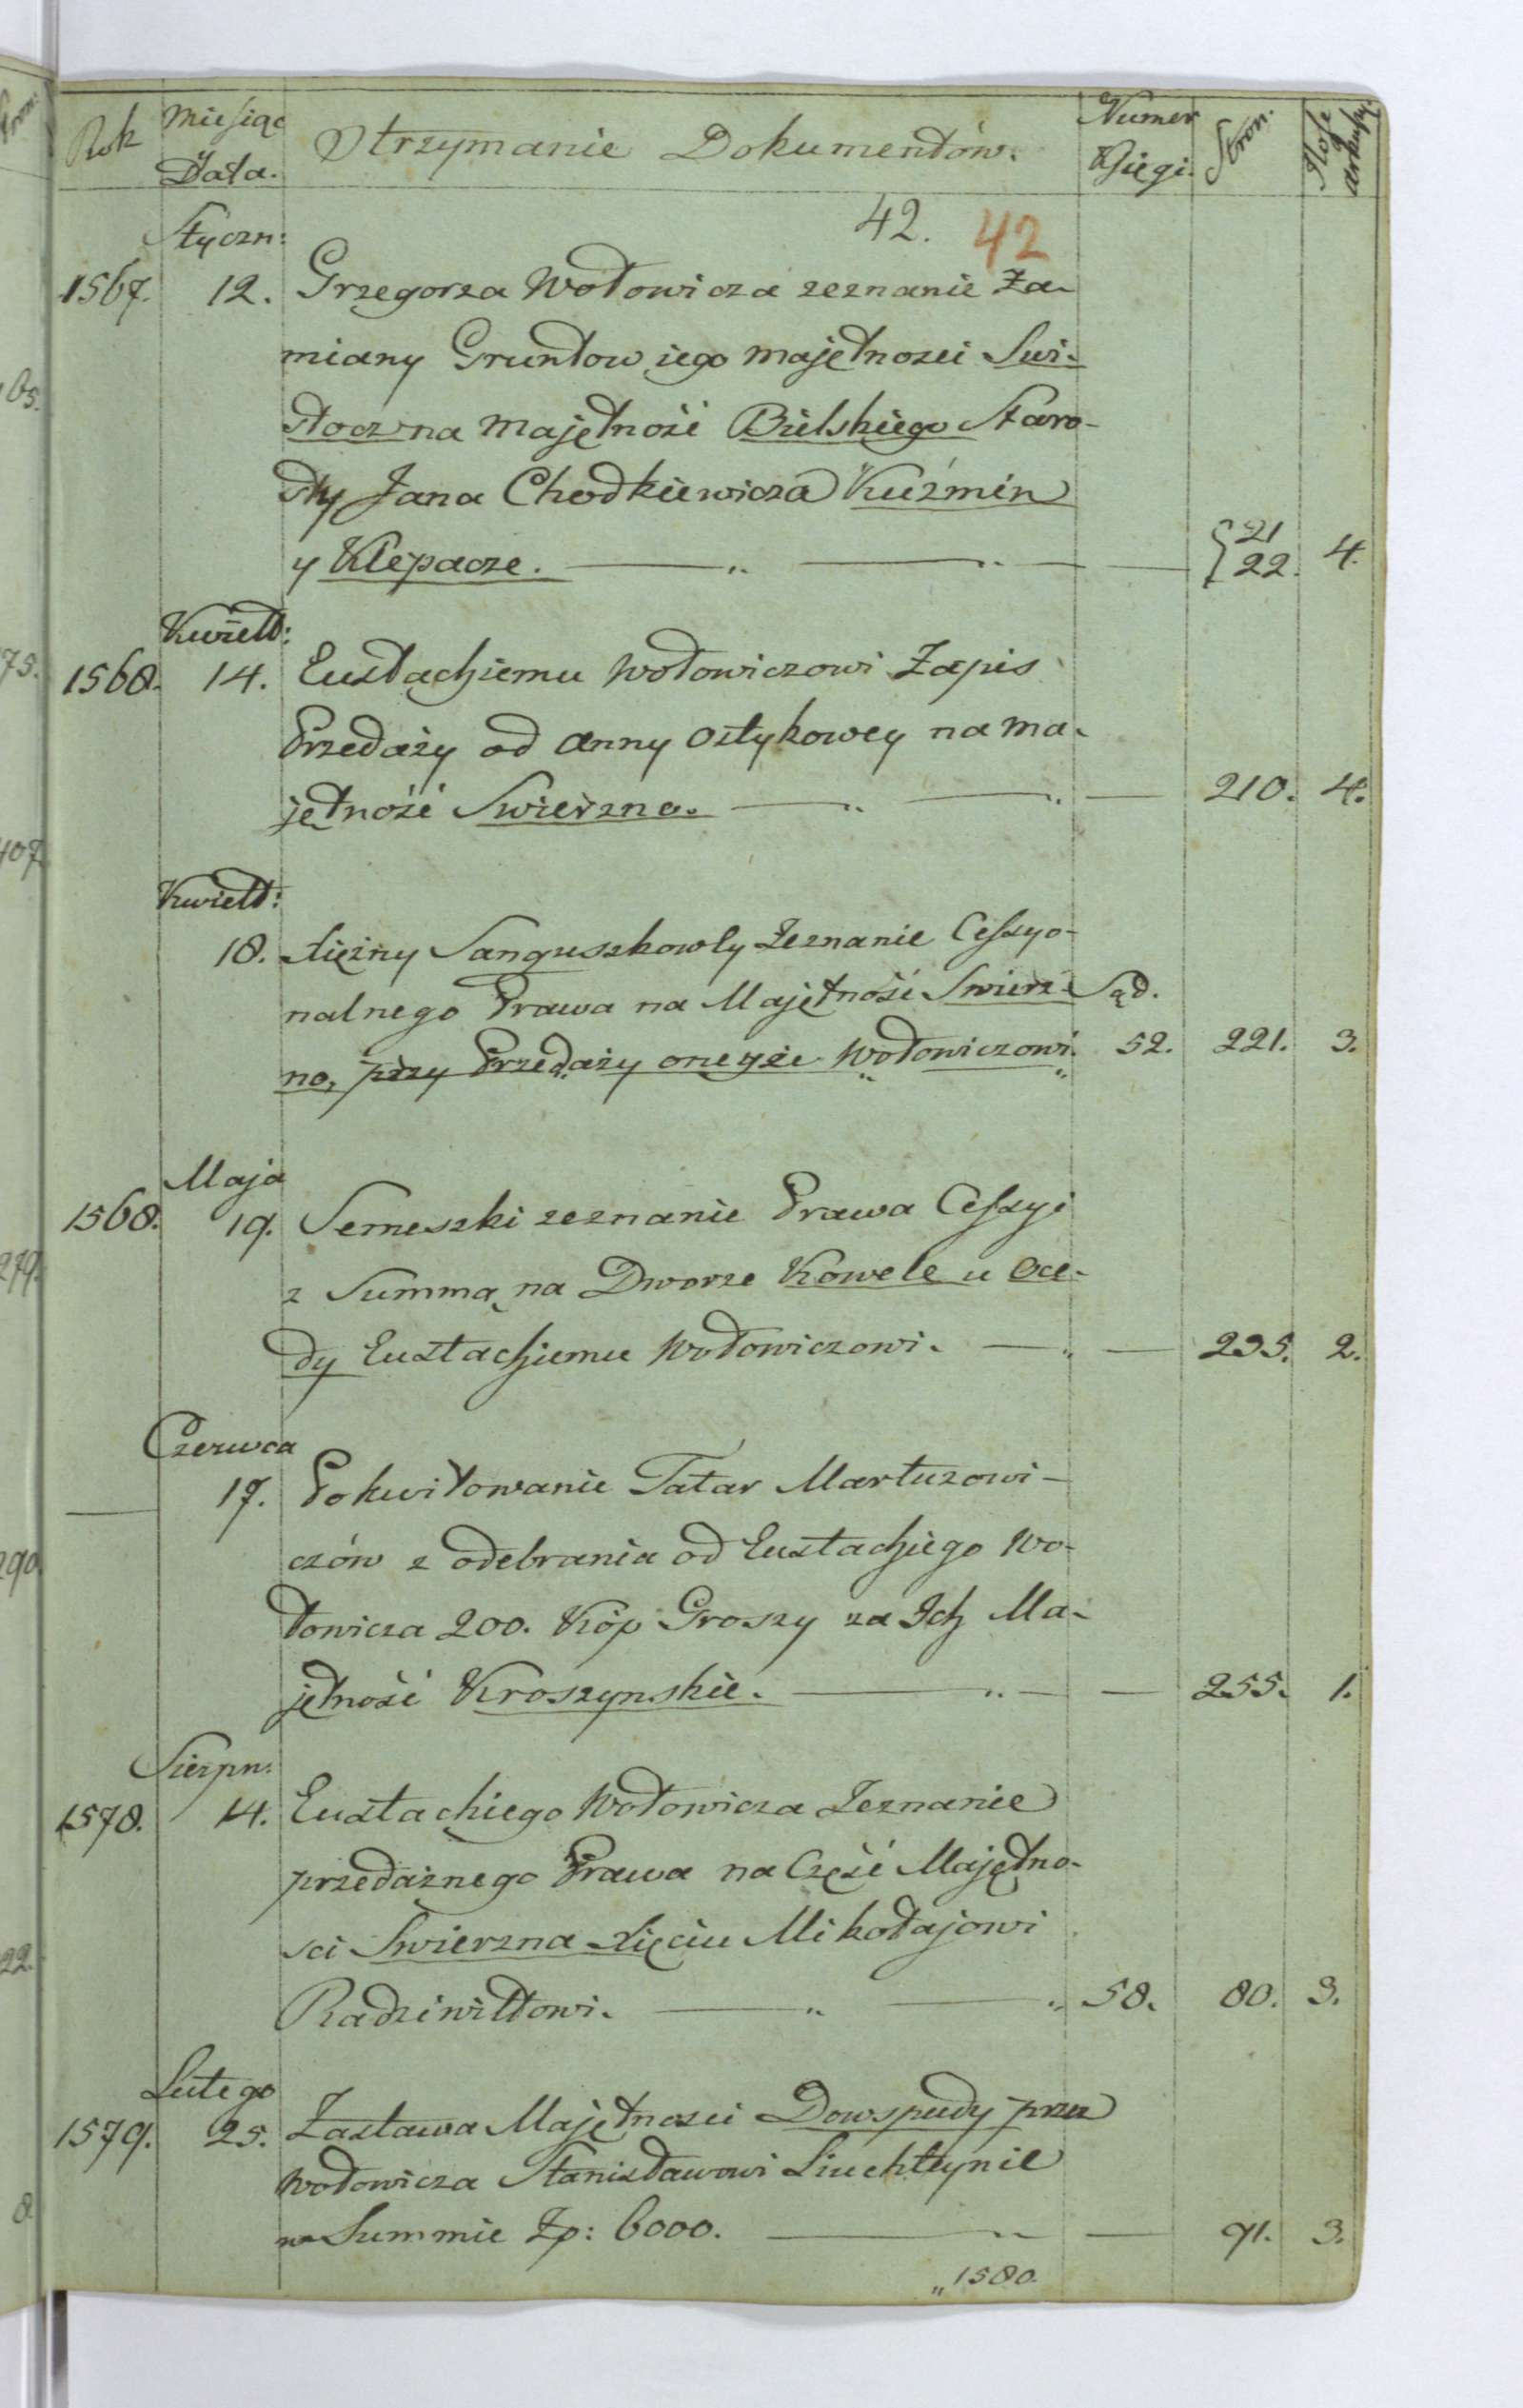 Rok Miesiąc Otrzymanie Dokumentów. Numer Stron. Ilośc
Data. Xsięgi. arkuszy.
42. 42
Styczn:
1567. 12. Grzegorza Wołowicza zeznanie Za-
miany Gruntow iego majętnosci Swi-
słocz na majętność Bielskiego Staro-
sty Jana Chodkiewicza Kuźmin
y Klepacze. — „ — „ — — { 21 22. 4.
Kwiet:
1568. 14. Eustachiemu Wołowiczowi Zapis
Przedaży od Anny Ostykowey na ma-
jętność Swierzno. — „ — „ — 210. 4.
Kwiet:
18. Xiężny Sanguszkowły Zeznanie Cessyo-
nalnego Prawa na Majętność Swierz- Sąd.
no, przy Przedaży oneyże Wołowiczowi. 52. 221. 3.
Maja
1568. 19. Semeszki zeznanie Prawa Cessyi
z Summą na Dworze Kowele u Oce-
dy Eustachiemu Wołowiczowi. — „ — 235. 2.
Czerwca
— 17. Pokwitowanie Tatar Martuzowi-
czów z odebrania od Eustachiego Wo-
łowicza 200. Kóp Groszy za Ich Ma-
jętność Kroszynskie. — „ — — 255. 1.
Sierpn:
1578. 14. Eustachiego Wołowicza Zeznanie
przedażnego Prawa na Część Majętno-
sci Swierzna Xięciu Mikołajowi
Radziwiłłowi. — „ — „ 58. 80. 3.
Lutego
1579. 25. Zastawa Majętnosci Dowspudy przez
Wołowicza Stanisławowi Liuchteynie
w Summie Zp: 6000. — „ — 91. 3.
„1580.